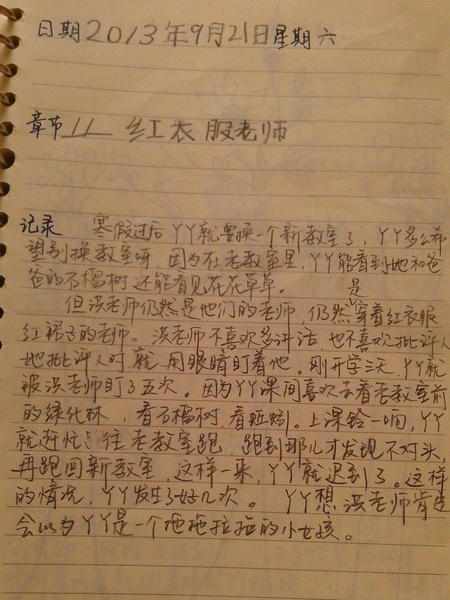 日期2013年9月21日星期六
章节11 红衣服老师
记录 寒假过后丫丫就要换一个新教室了，丫丫多么希
望别换教室呀，因为在老教室里，丫丫能看到她和爸
爸的石榴树还能看见花花草草。
但洪老师仍然是他们的老师，仍然是穿着红衣服
红裙子的老师。洪老师不喜欢多讲话 也不喜欢批评人
她批评人时就用眼睛盯着他。刚开学三天，丫丫就
被洪老师盯了五次。因为丫丫课间喜欢去看老教室前
的绿化林，看石榴树，看蚯蚓。上课铃一响，丫丫
就赶忙往老教室跑，跑到那儿才发现不对头，
再跑回新教室，这样一来，丫丫就迟到了。这样
的情况，丫丫发生了好几次。丫丫想洪老师肯定
会以为丫丫是一个拖拖拉拉的小女孩。